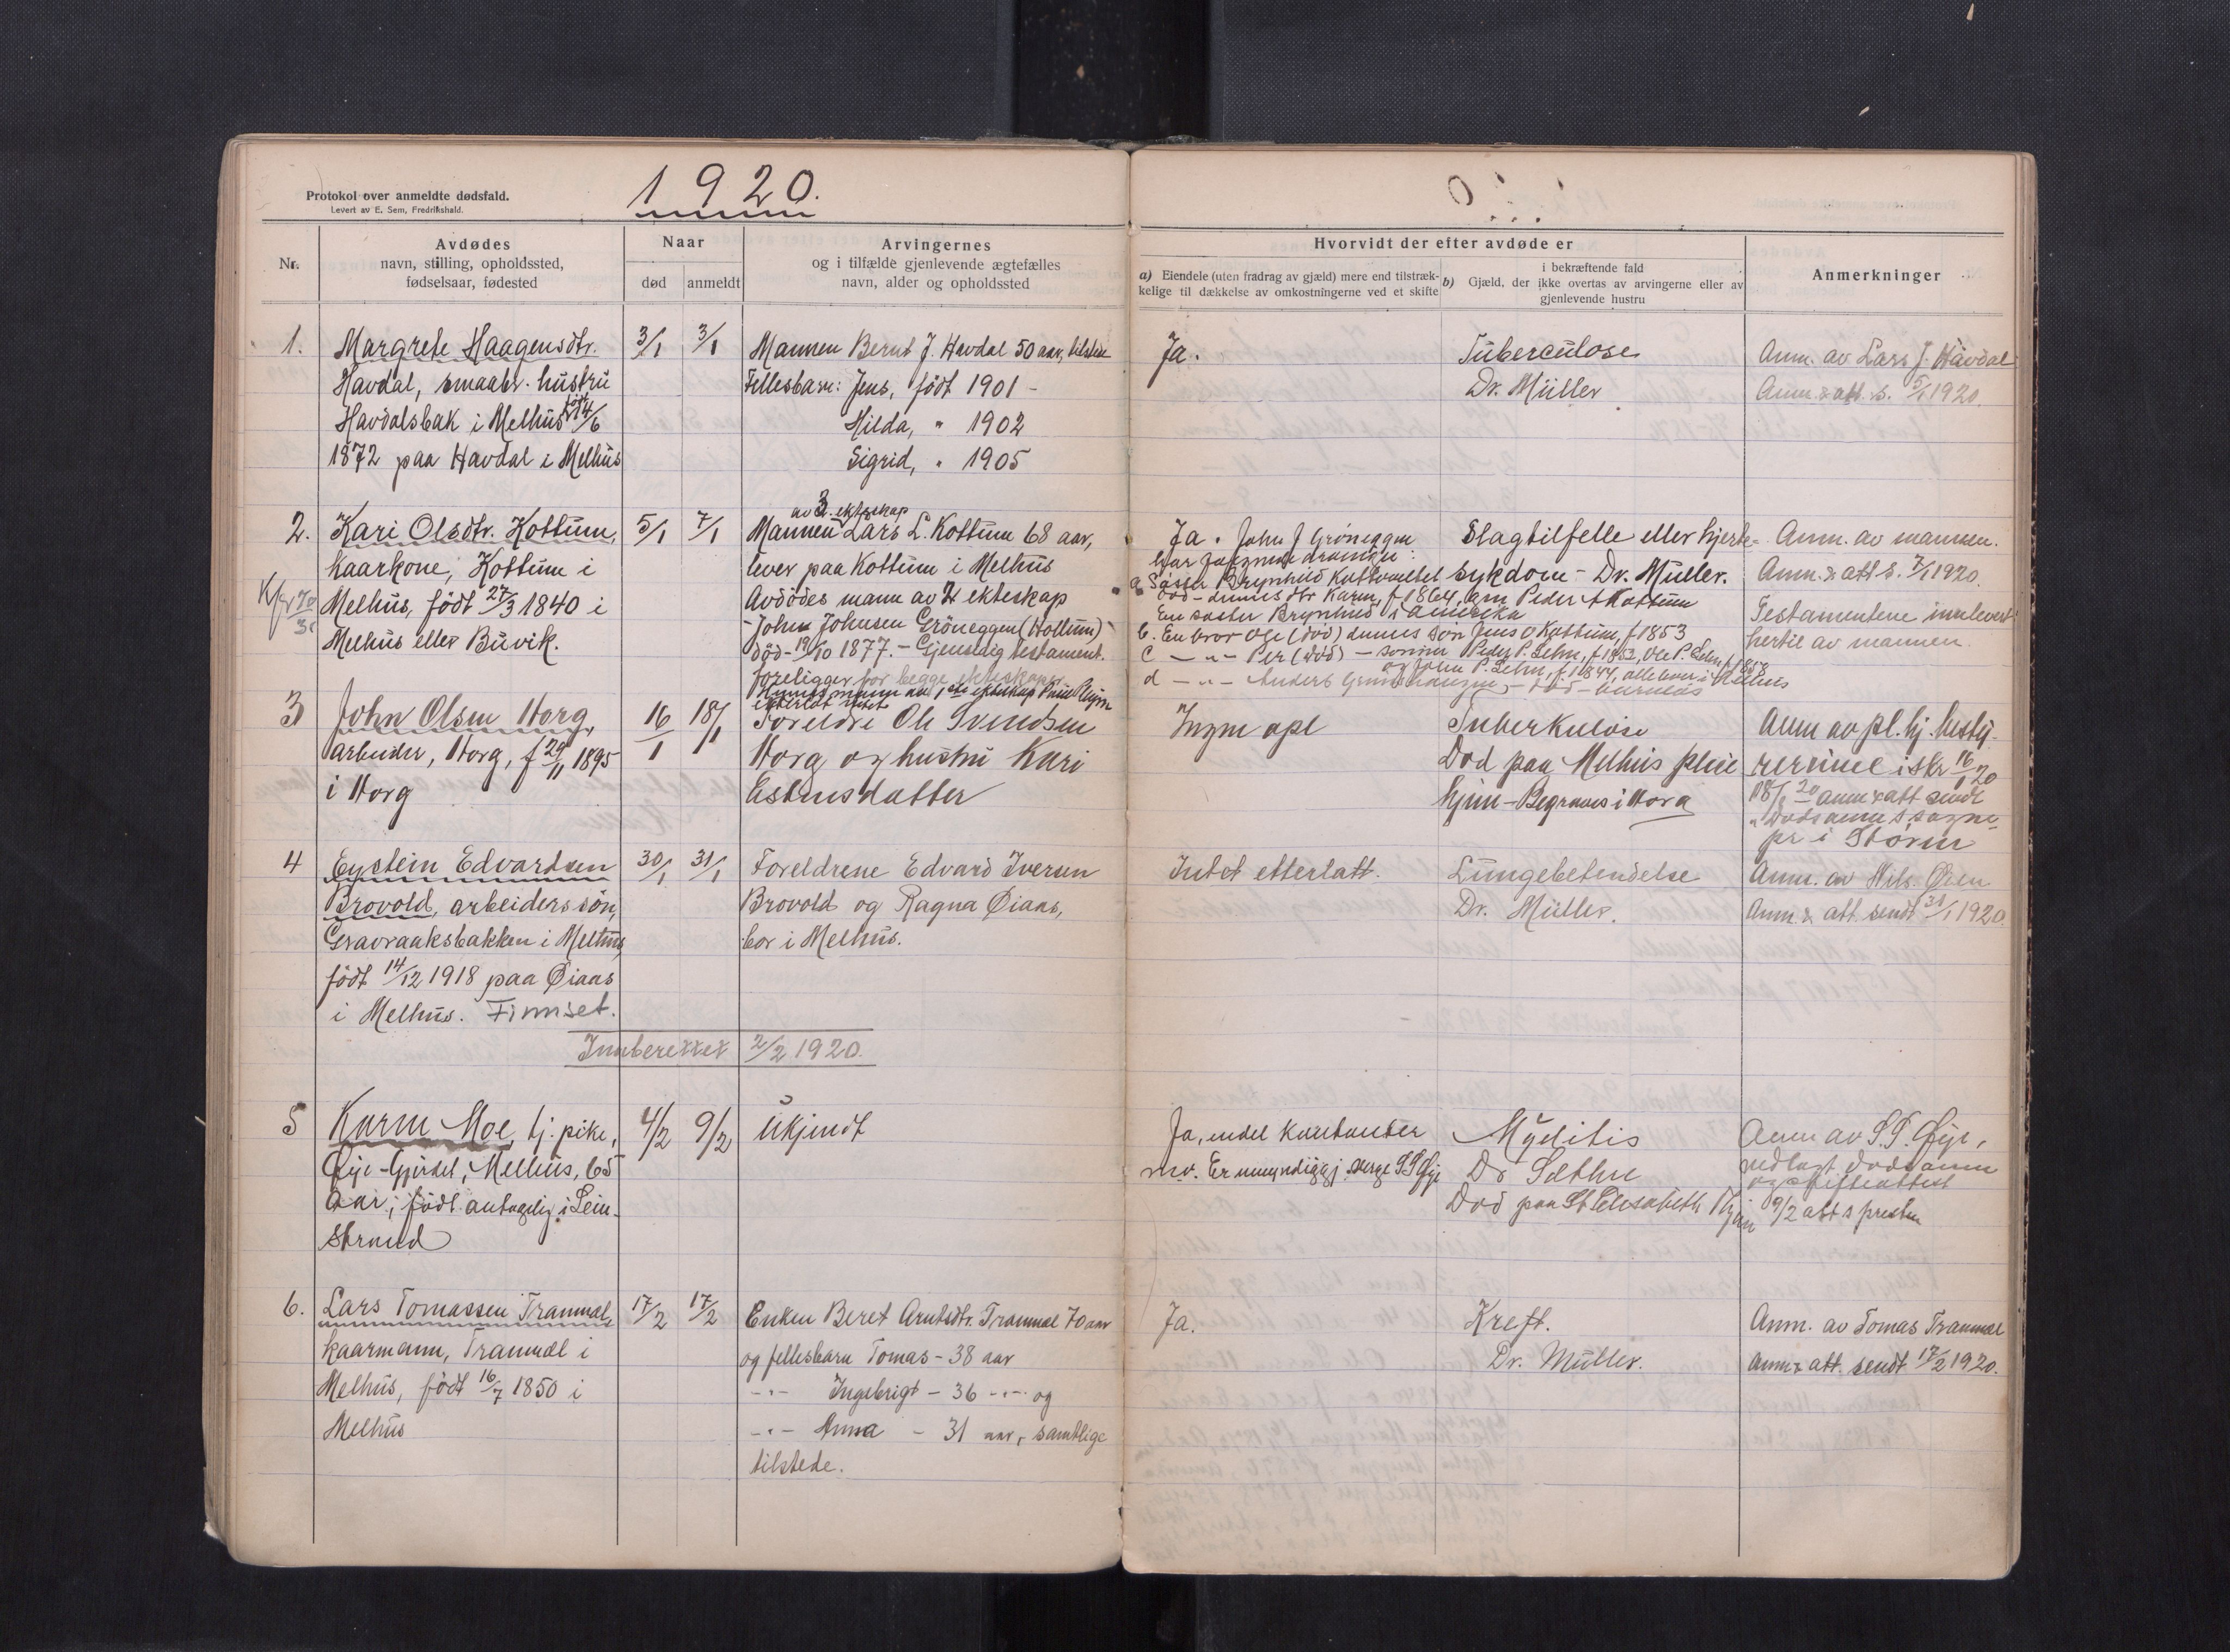 Protokol over anmeldte dødsfald.
Levert av E. Sem, Fredrikshald.
1920.
Nr.
Avdødes
navn, stilling, opholdssted,
fødselsaar, fødested
Naar
død
anmeldt
Arvingernes
og i tilfælde gjenlevende ægtefælles
navn, alder og opholdssted
Hvorvidt der efter avdøde er
a) Eiendele (uten fradrag av gjæld) mere end tilstræk-
kelige til dækkelse av omkostningerne ved et skifte
i bekræftende fald
b) Gjæld, der ikke overtas av arvingerne eller av
gjenlevende hustru
Anmerkninger
1.
Margrete Haagensdtr.
Havdal, smaabr. hustru
Havdalsbak i Melhus født 14/6
1872 paa Havdal i Melhus
3/1
3/1
Mannen Bernt J. Havdal 50 aar, tilstede
Fellesbarn: Jens, født 1901 -
Hilda, " 1902
Sigrid, " 1905
Ja.
Tuberculose
Dr. Müller
Anm. av Lars J. Havdal
Anm. & att. s. 5/1 1920.
2.
Kari Olsdtr. Kottum,
kaarkone, Kottum i
Melhus, født 27/3 1840 i
Melhus eller Buvik.
5/1
7/1
av 3. ekteskap
Mannen Lars L. Kottum 68 aar,
lever paa Kottum i Melhus
Avdødes mann av 2 ekteskap
John Johnsen Grøneggen (Kottum)
død 19/10 1877. - Gjensidig testament.
foreligger for begge ekteskaper
Ja. John J Grøneggen
har følgende arvinger:
En søster Brynhild i Amerika
b. En bror Ole (død) dennes søn Jens O Kottum, f 1853
c - " - Per (død) - sønner Peder P. Lehn, f 1852, Ole P. Lehn f 1858
og John P. Lehn, f. 1844, alle bor i Melhus
Slagtilfelle eller hjerte-
sykdom - Dr. Müller.
Anm. av mannen.
Anm. & att s. 7/1 1920.
Testamentene innlevert
hertil av mannen.
3
John Olsen Horg,
arbeider, Horg, f 29/11 1895
i Horg
16/1
18/1
Foreldre Ole Svendsen
Horg og hustru Kari
Estensdatter
Ingen opl
Tuberkulose
Død paa Melhus pleie
hjem - Begraves i Horg
Anm av pl. hj. besty-
rerinne i skr 16/1 20
18/1 20 anm & att sendt
pr i Støren
4
Eystein Edvardsen
Brovold, arbeiders søn,
Gravraaksbakken i Melhus,
født 14/12 1918 paa Øiaas
i Melhus. Finnset.
30/1
31/1
Foreldrene Edvard Iversen
Brovold og Ragna Øiaas,
bor i Melhus.
Intet etterlatt.
Lungebetendelse
Dr. Müller.
Anm. av Nils Øien
Anm. & att. sendt 31/1 1920.
Innberettet 2/2 1920.
5
Karen Moe, tj. pike,
Øye-Gjerdet, Melhus, 65
aar, født antagelig i Lein-
strand
4/2
9/2
Ukjendt
Ja, endel kontanter
mv. Er umyndiggj. verge S S Øye
Myelitis
Dr Sæthre
Død paa St Elisabeth Thjem
Anm av S. S. Øye,
vedlagt dødsanm
og skifteattest
9/2 att s presten
6.
Lars Tomassen Tranmæl,
kaarmann, Tranmæl i
Melhus, født 16/7 1850 i
Melhus
17/2
17/2
Enken Beret Arntsdtr. Tranmæl 70 aar
og fellesbarn Tomas - 38 aar
- " - Ingebrigt - 36 - " - og
- " - Anna - 31 aar, samtlige
tilstede.
Ja.
Kreft.
Dr. Müller.
Anm. av Tomas Tranmæl
Anm & att. sendt 17/2 1920.